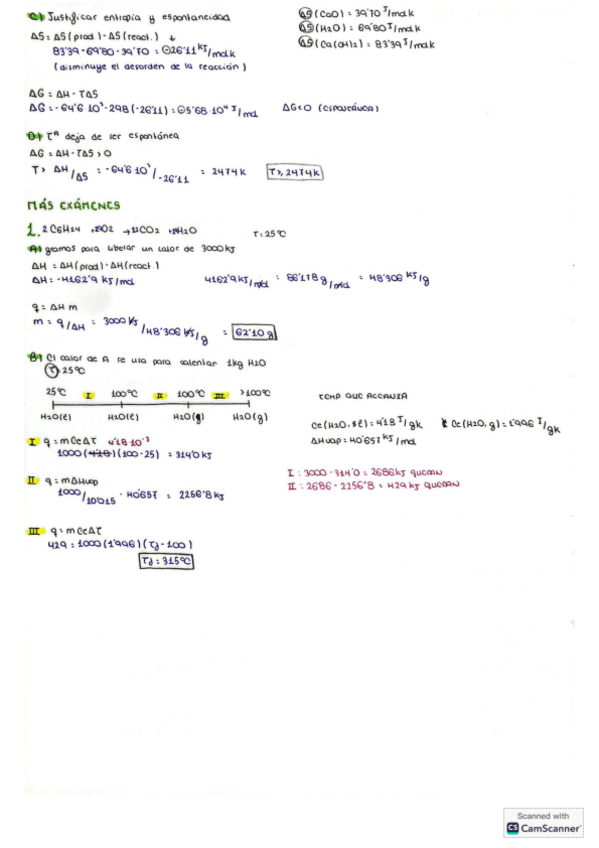 C) Justificar entropía y espontaneidad
ΔS = ΔS(prod) - ΔS(react.) ↓
83'39 - 69'80 - 39'70 = -26'11 kJ/molk
(disminuye el desorden de la reacción)
ΔS(CaO) = 39'70 J/molk
ΔS(H2O) = 69'80 J/molk
ΔS(Ca(OH)2) = 83'39 J/molk
ΔG = ΔH - TΔS
ΔG = -64'6 10³ - 298 (-26'11) = -5'68 · 10⁴ J/mol ΔG<0 (ESPONTÁNEA)
D) Tª deja de ser espontánea
ΔG = ΔH - TΔS > 0
T > ΔH/ΔS = -64'6 10³/-26'11 = 2474 K T > 2474K
MÁS EXÁMENES
1. 2C6H14 O2 → 12CO2 H2O T = 25ºC
A) gramos para liberar un calor de 3000 kJ
ΔH = ΔH(prod) - ΔH(react.)
ΔH = -4162'9 kJ/mol 4162'9 kJ/mol = 86'178 g/mol = 48'306 kJ/g
q = ΔH m
m = q/ΔH = 3000 kJ/48'306 kJ/g = 62'10 g
B) El calor de A se usa para calentar 1kg H2O
T) 25ºC
25ºC I 100ºC II 100ºC III >100ºC
H2O(l) H2O(l) H2O(g) H2O(g)
TEMP QUE ALCANZA
Ce(H2O, l) = 4'18 J/gk Ce(H2O, g) = 1'996 J/gk
ΔHvap = 40'657 kJ/mol
I q = m Ce ΔT 4'18·10⁻³
1000 (4'18) (100-25) = 314'0 kJ
II q = m ΔHvap
1000/18'015 · 40'657 = 2256'8 kJ
I : 3000 - 314'0 = 2686 kJ QUEDAN
II : 2686 - 2256'8 = 429 kJ QUEDAN
III q = m Ce ΔT
429 = 1000 (1'996) (Tf - 100)
Tf = 315ºC
Scanned with
CS CamScanner